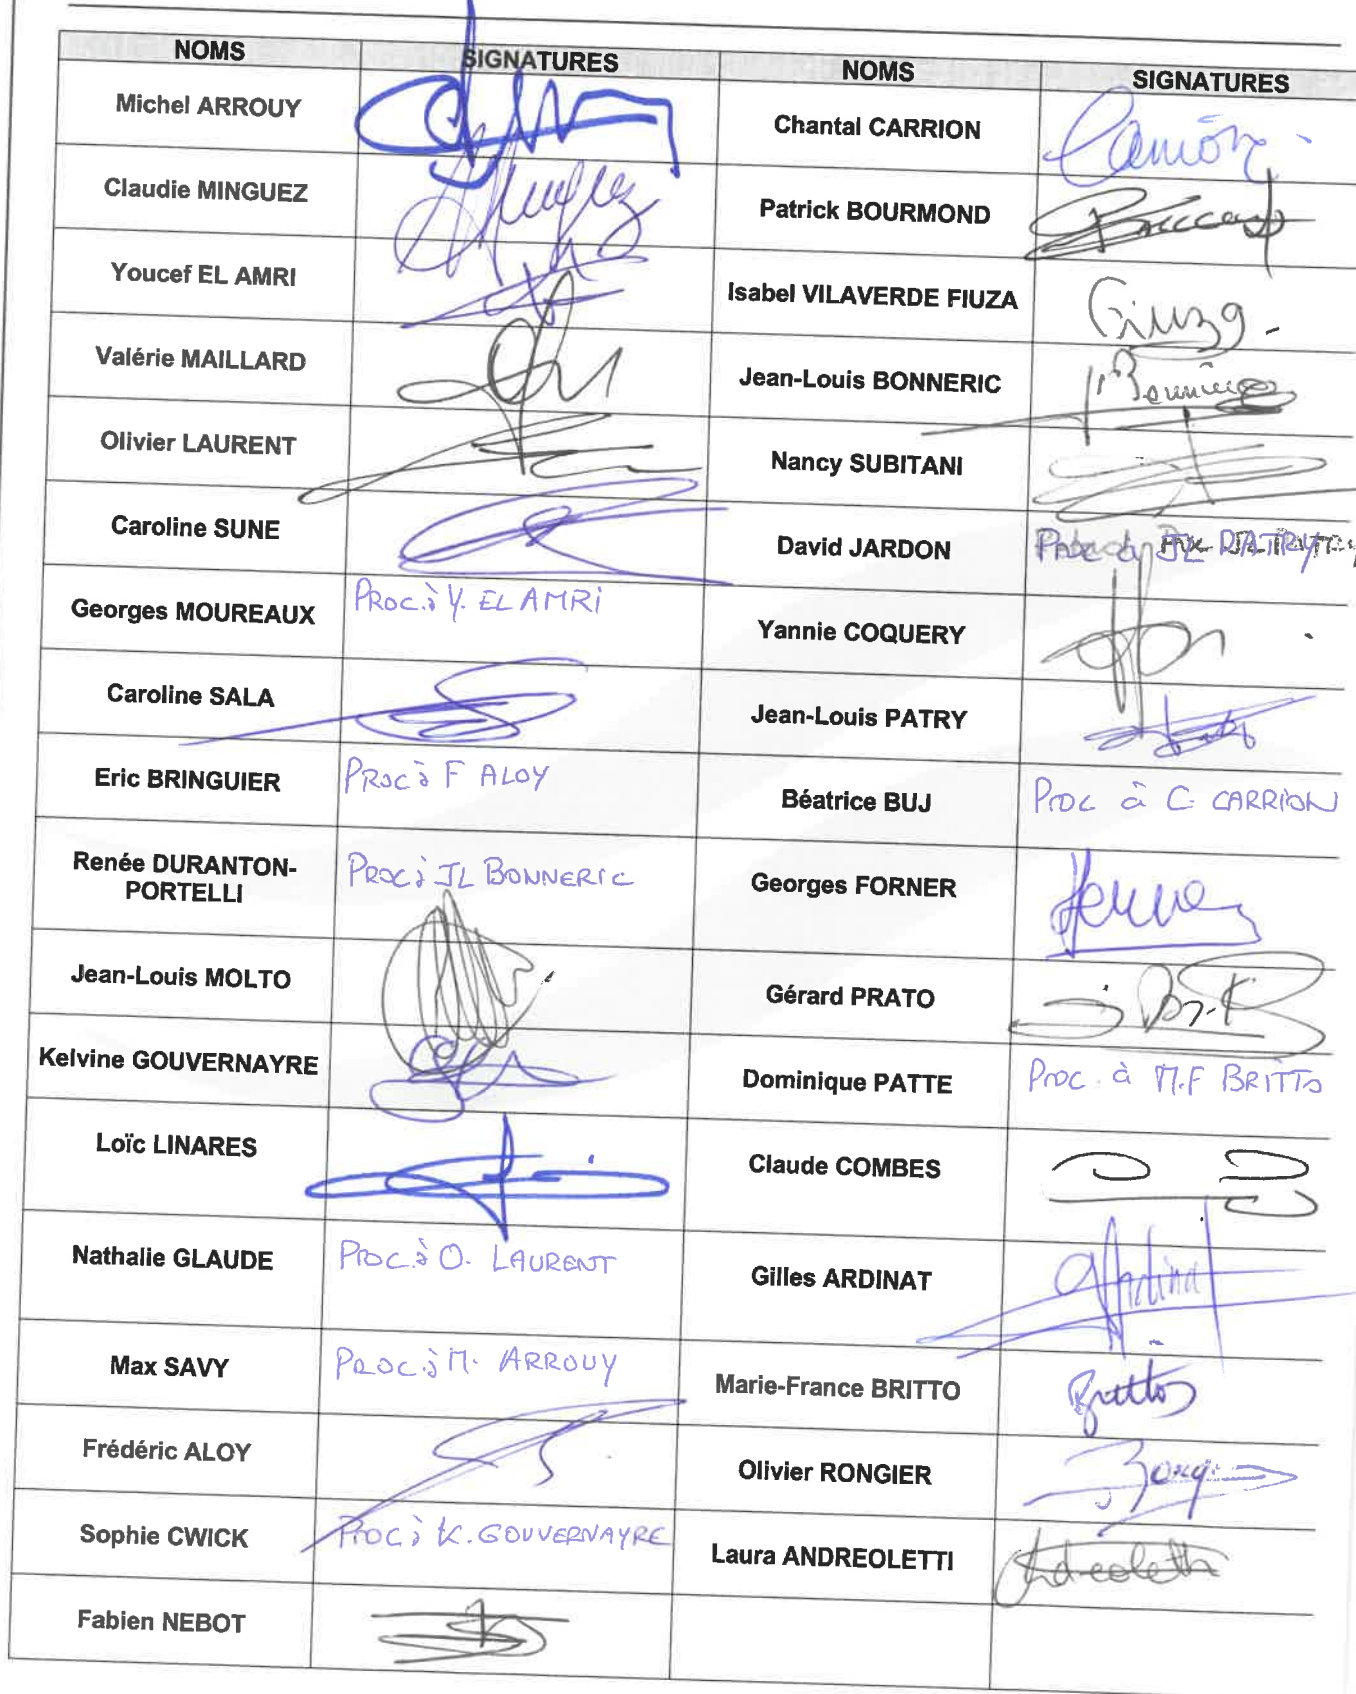 NOMS SIGNATURES NOMS SIGNATURES
Michel ARROUY Chantal CARRION Carrion
Claudie MINGUEZ Minguez Patrick BOURMOND
Youcef EL AMRI Isabel VILAVERDE FIUZA Fiuza
Valérie MAILLARD Jean-Louis BONNERIC Bonneric
Olivier LAURENT Nancy SUBITANI
Caroline SUNE David JARDON Proc à JL PATRY
Georges MOUREAUX PROC à Y. EL AMRI Yannie COQUERY
Caroline SALA Jean-Louis PATRY
Eric BRINGUIER PROC à F ALOY Béatrice BUJ PROC à C. CARRION
Renée DURANTON-
PORTELLI PROC à JL BONNERIC Georges FORNER
Jean-Louis MOLTO Gérard PRATO
Kelvine GOUVERNAYRE Dominique PATTE Proc. à M.F BRITTO
Loïc LINARES Claude COMBES
Nathalie GLAUDE PROC à O. LAURENT Gilles ARDINAT Ardinat
Max SAVY PROC à M. ARROUY Marie-France BRITTO Britto
Frédéric ALOY Olivier RONGIER
Sophie CWICK PROC à K. GOUVERNAYRE Laura ANDREOLETTI Andreoletti
Fabien NEBOT